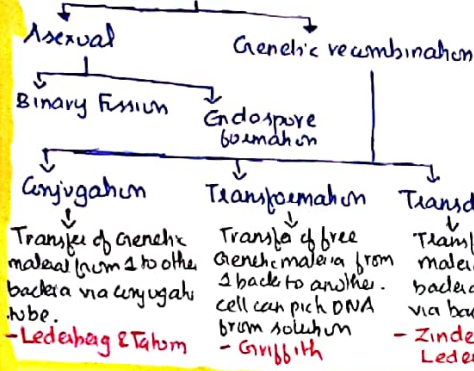 Asexual
Genetic recombination
Binary Fission
Endospore
formation
Conjugation
Transformation
Transd
Transfer of Genetic
material from 1 to other
bacteria via conjugati
tube.
- Lederberg & Tatum
Transfer of free
Genetic materia from
1 back to another.
cell can pick DNA
from solution
- Griffith
Transf
materi
bacteri
via ba
- Zinde
Leder